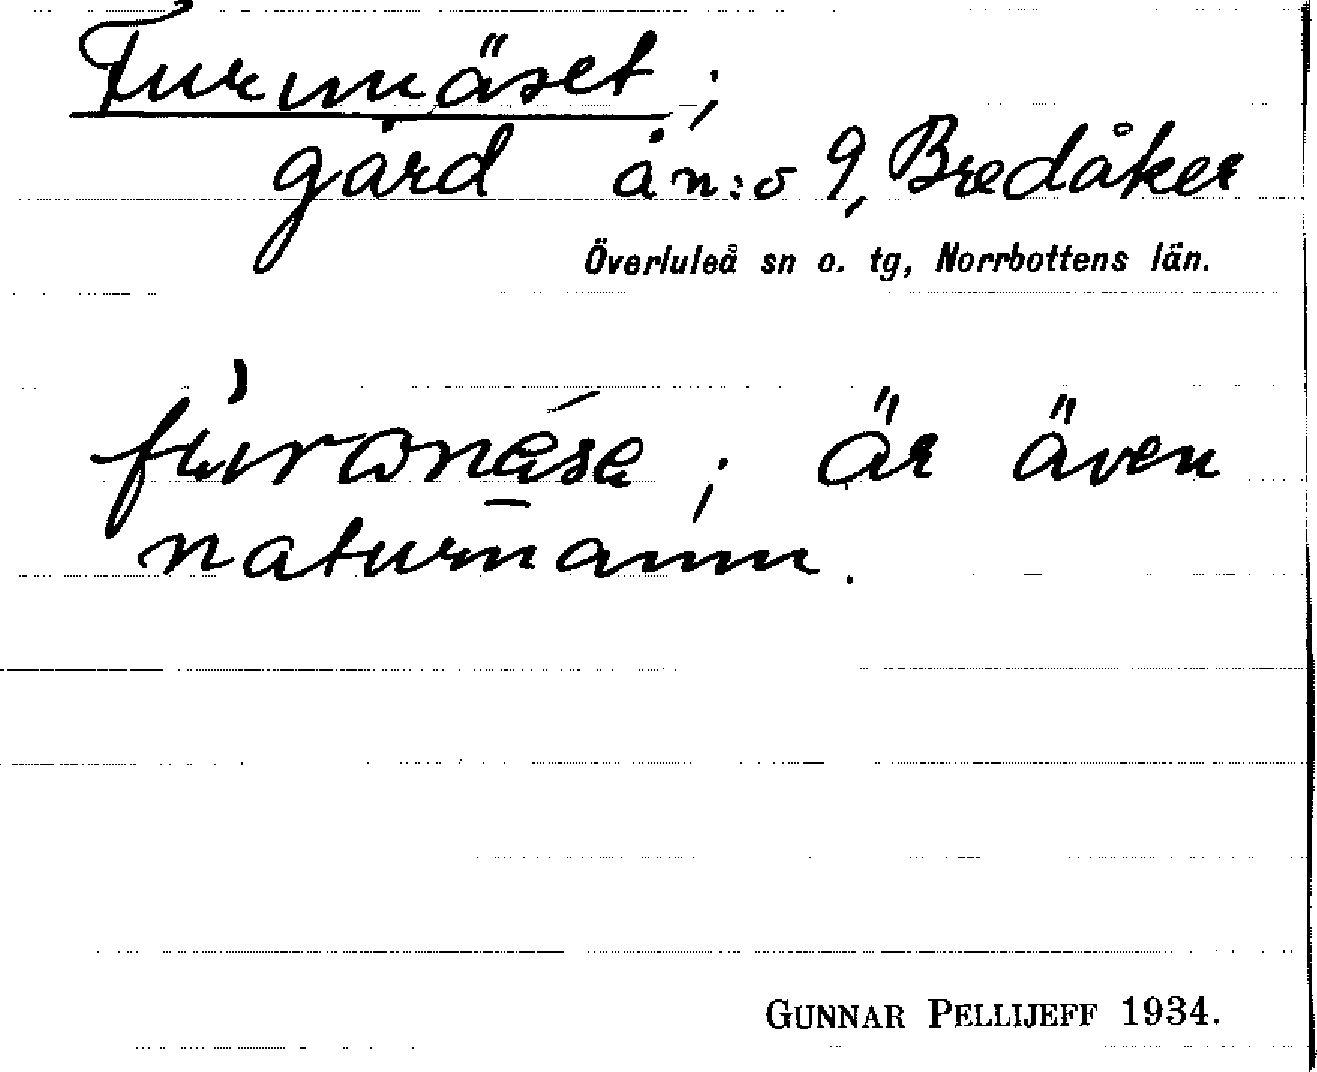 Furunäset;
gård å n:o 9, Bredåker
Överluleå sn o. tg, Norrbottens län.
; är även
naturnamn.
GUNNAR PELLIJEFF 1934.